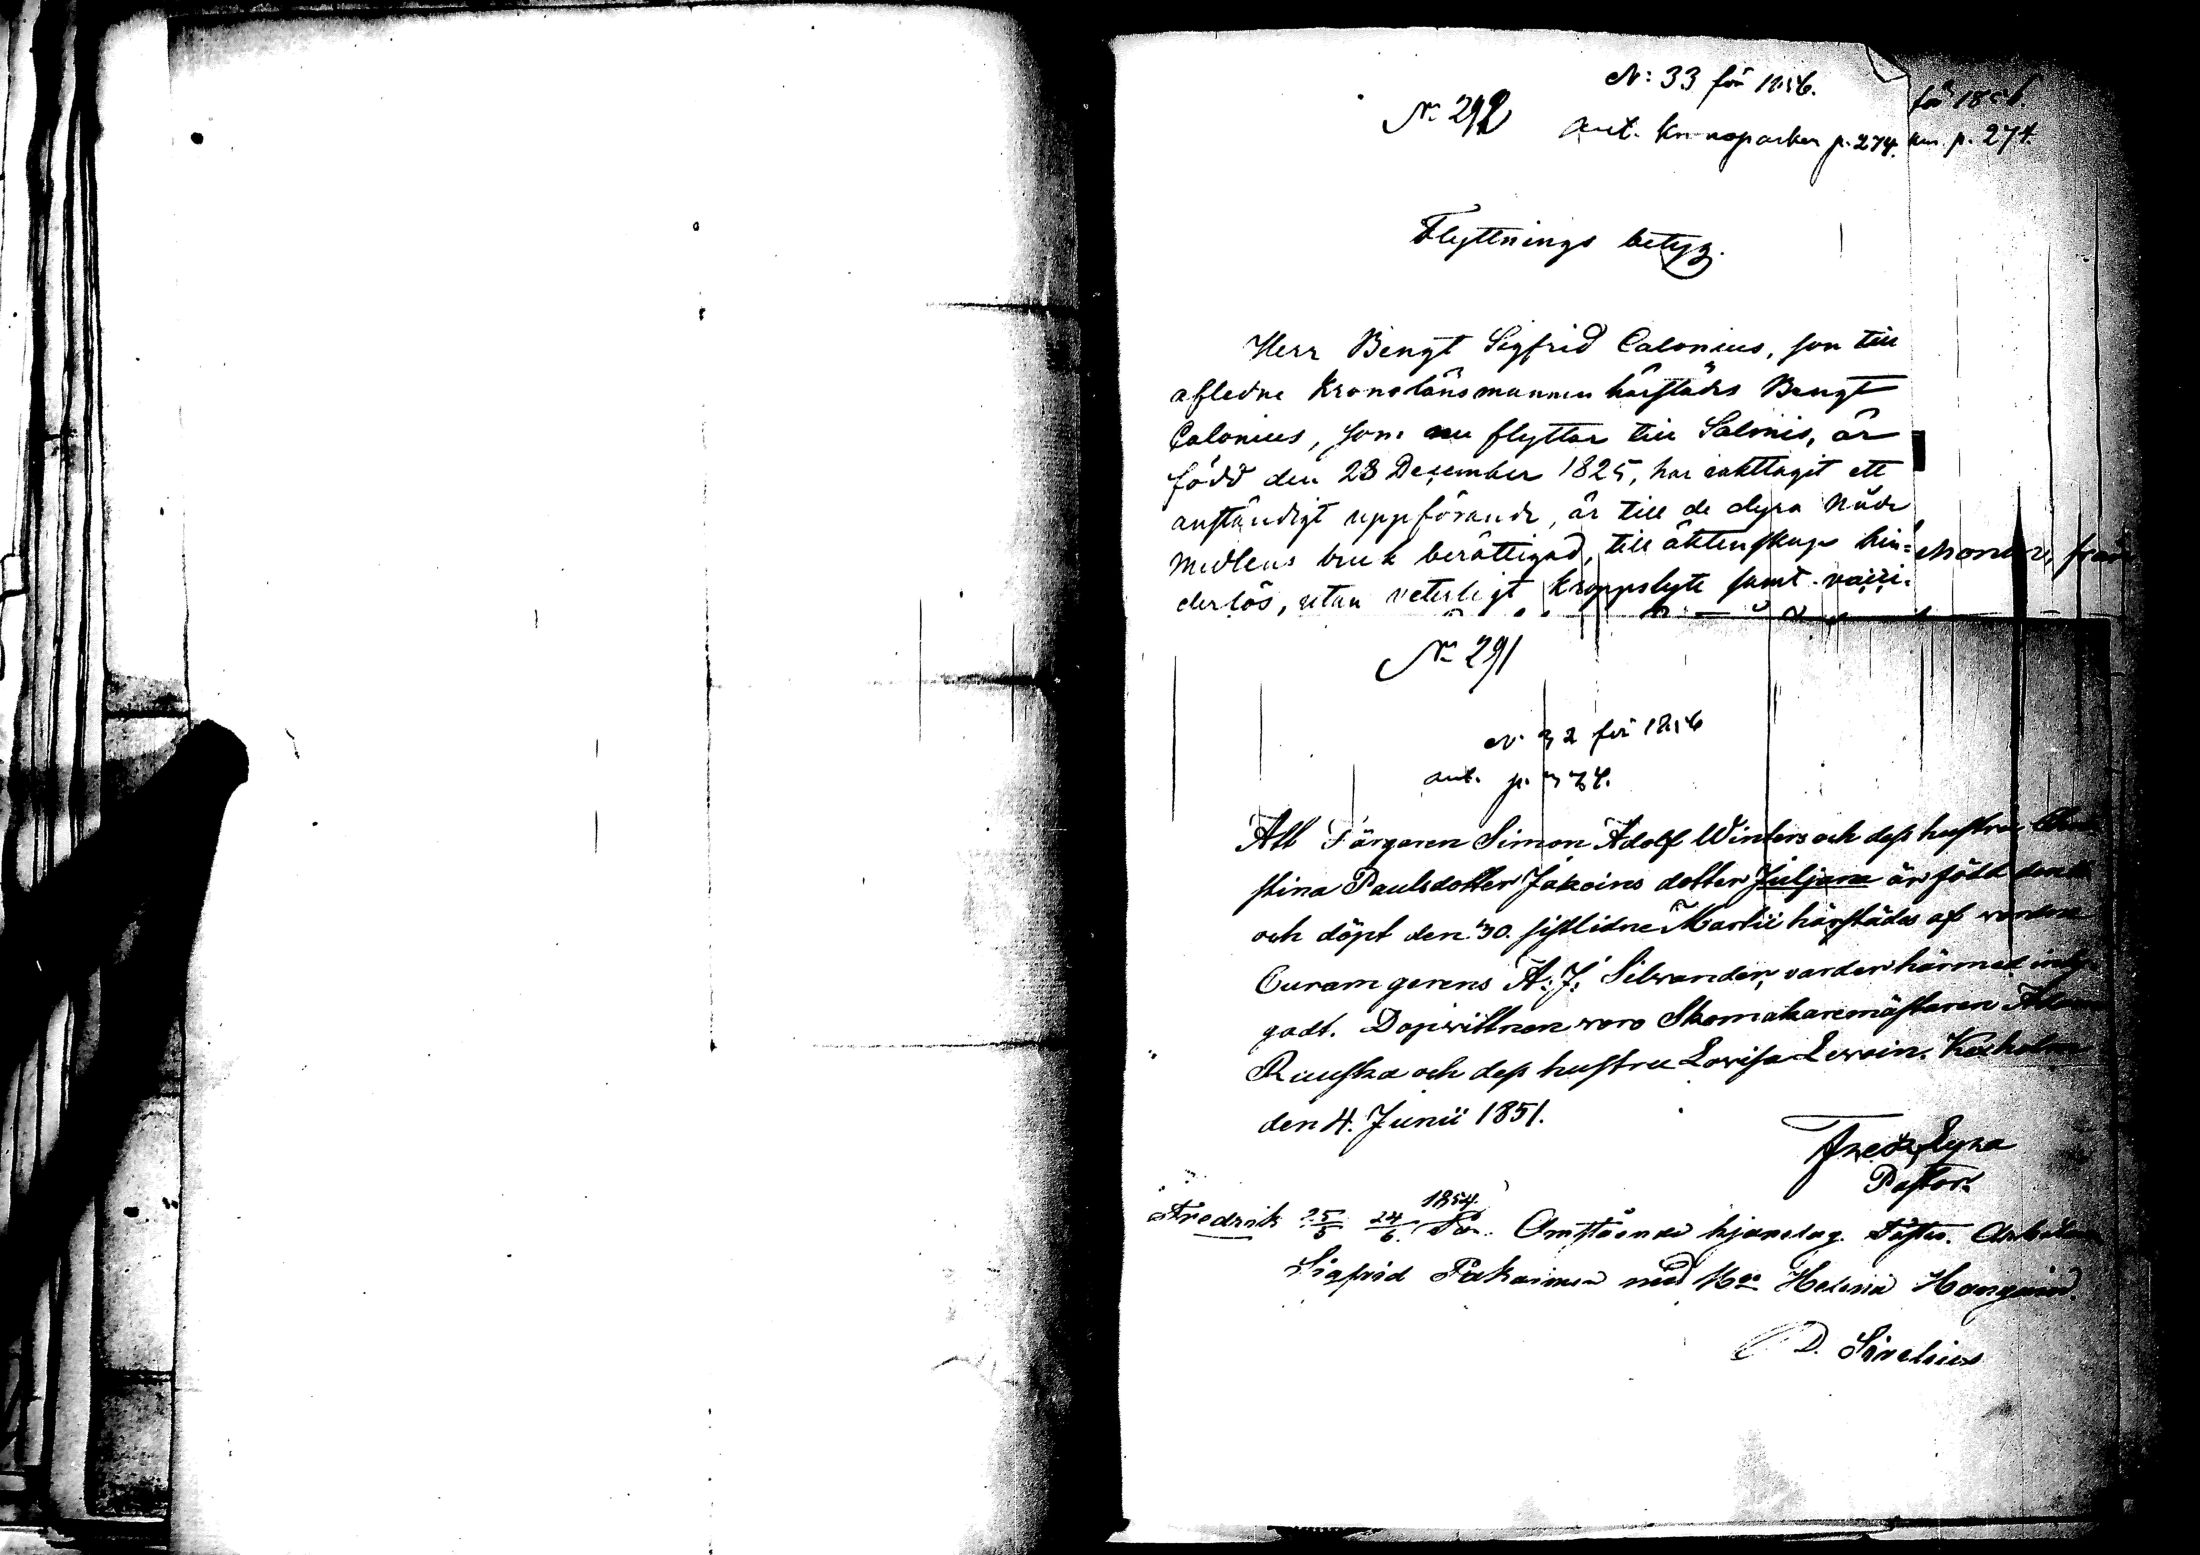 N: 33 för 1856.
för 1856.
No 292
ant. p. 274.
p. 274.
Flyttnings betyg.
Herr Bengt Sigfrid Calonius, son till
afledne Kronolänsmannen härstädes Bengt
Calonius, som nu flyttar till Salmis, är
född den 28 December 1825, har iakttagit ett
anständigt uppförande, är till de dyra Nåde
medlens bruk berättigad, till äktenskap hin=
derlös, utan veterligt kroppslyte samt vacci-
No 291
N 32 för 1856
ant. p. 374.
Att Färgaren Simon Adolf Winters och dess hustru
stina Paulsdotter Jakoins dotter Juljana är född den
och döpt den 30. sistlidne Martii härstädes af
Curam gerens A: J: Silvander, varder härmed
gadt. Dopvittnen woro Skomakaremästaren
Ruuska och dess hustru Lovisa Lewoin. Kexholm
den 4. Junii 1851.
Fredr. Eyra
Pastor.
1854.
Fredrik 25/5 24/6
Sigfrid Pakarinen med Helena
D. Sirelius